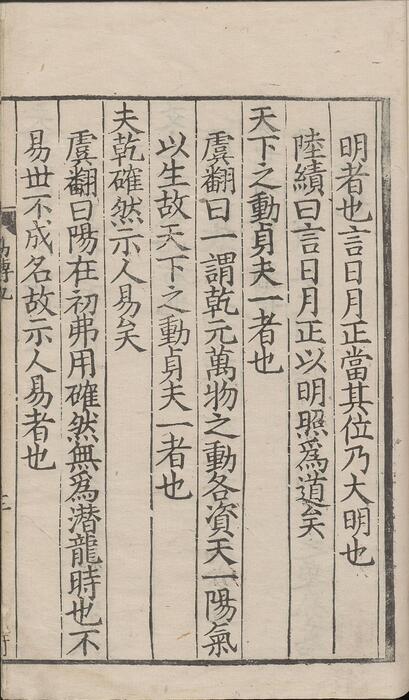 明者也言日月正當其位乃大明也
陸績曰言日月正以明照爲道矣
天下之動貞夫一者也
虞翻曰一謂乾元萬物之動各資天一陽氣
以生故天下之動貞夫一者也
夫乾確然示人易矣
虞翻曰陽在初弗用確然無爲潜龍時也不
易世不成名故示人易者也